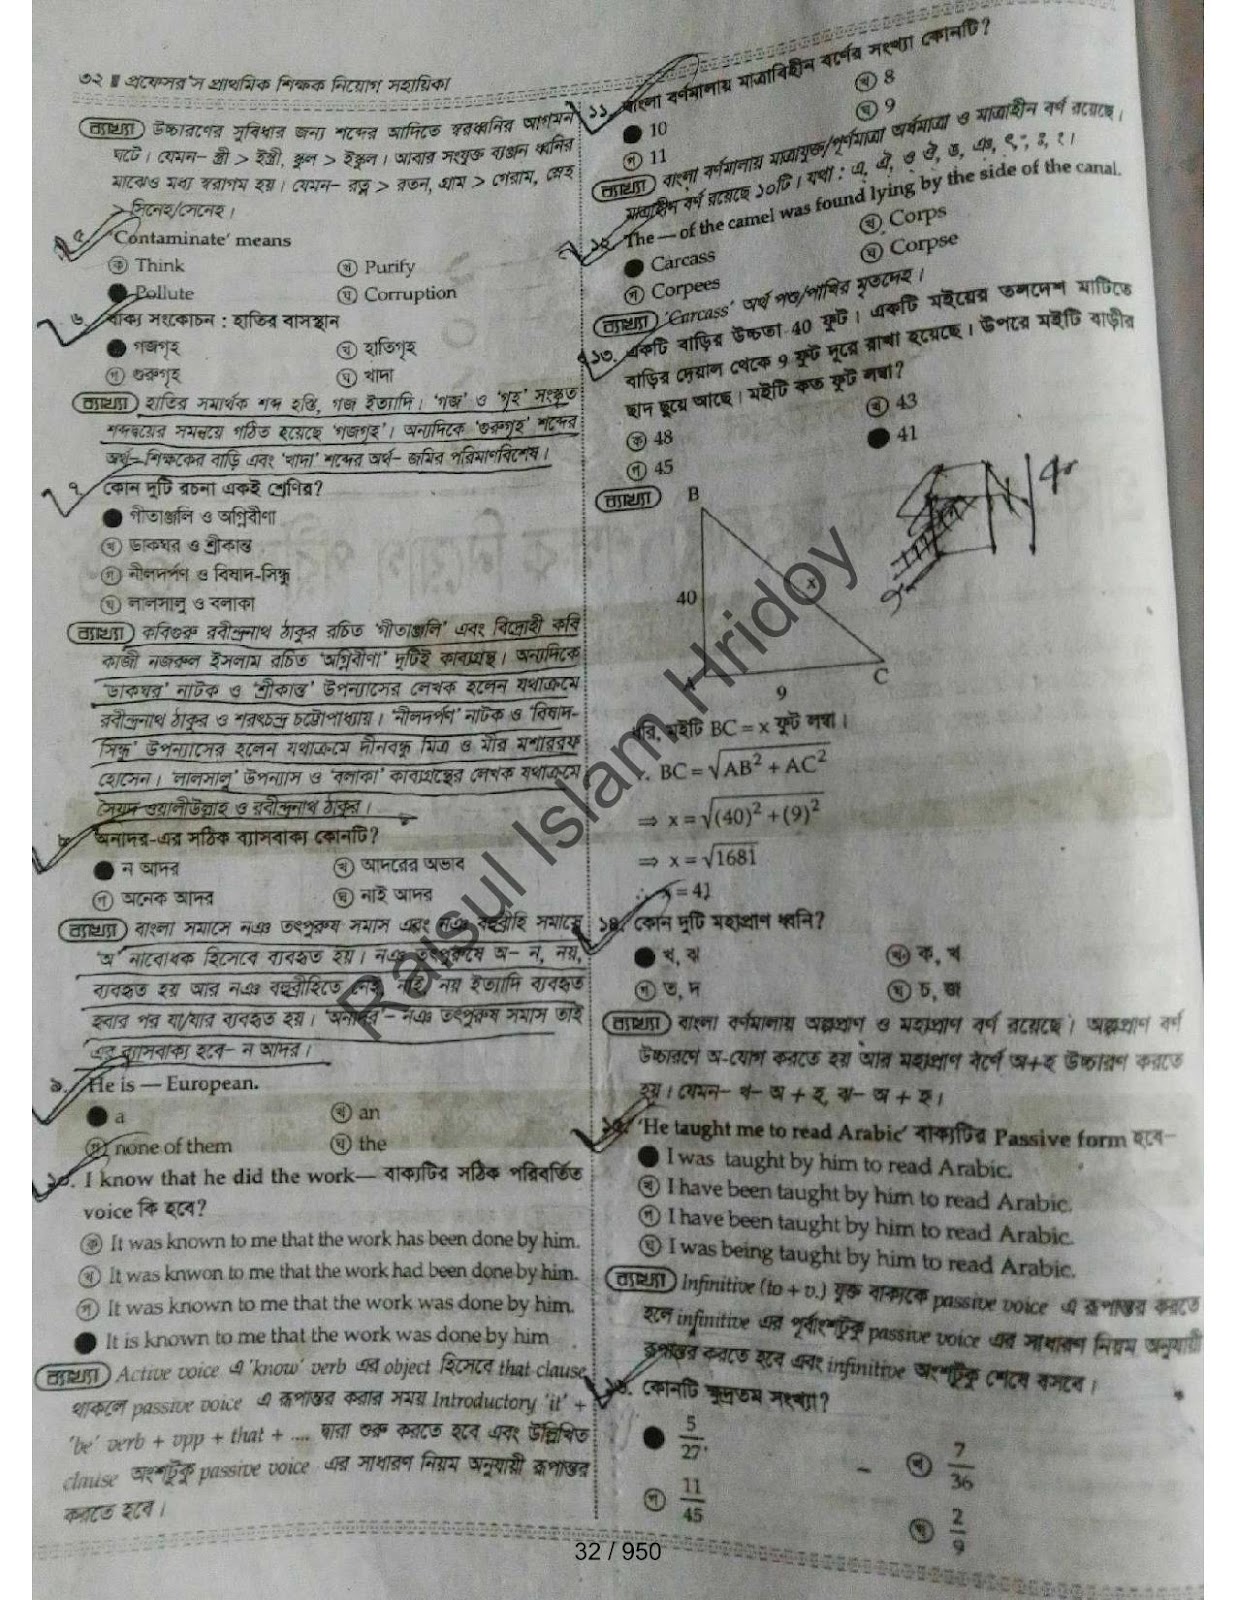 ৩২ ■ প্রফেসর'স প্রাথমিক শিক্ষক নিয়োগ সহায়িকা
ব্যাখ্যা উচ্চারণের সুবিধার জন্য শব্দের আদিতে স্বরধ্বনির আগমন
ঘটে। যেমন– স্ত্রী > ইস্ত্রী, স্কুল > ইস্কুল। আবার সংযুক্ত ব্যঞ্জন ধ্বনির
মাঝেও মধ্য স্বরাগম হয়। যেমন– রত্ন > রতন, গ্রাম > গেরাম, স্নেহ
> সিনেহ/সেনেহ।
৫. 'Contaminate' means
ক Think খ Purify
Pollute ঘ Corruption
৬. বাক্য সংকোচন : হাতির বাসস্থান
গজগৃহ খ হাতিগৃহ
গ গুরুগৃহ ঘ খাদা
ব্যাখ্যা হাতির সমার্থক শব্দ হস্তি, গজ ইত্যাদি। 'গজ' ও 'গৃহ' সংস্কৃত
শব্দদ্বয়ের সমন্বয়ে গঠিত হয়েছে 'গজগৃহ'। অন্যদিকে 'গুরুগৃহ' শব্দের
অর্থ– শিক্ষকের বাড়ি এবং 'খাদা' শব্দের অর্থ– জমির পরিমাণবিশেষ।
৭. কোন দুটি রচনা একই শ্রেণির?
গীতাঞ্জলি ও অগ্নিবীণা
খ ডাকঘর ও শ্রীকান্ত
গ নীলদর্পণ ও বিষাদ-সিন্ধু
ঘ লালসালু ও বলাকা
ব্যাখ্যা কবিগুরু রবীন্দ্রনাথ ঠাকুর রচিত 'গীতাঞ্জলি' এবং বিদ্রোহী কবি
কাজী নজরুল ইসলাম রচিত 'অগ্নিবীণা' দুটিই কাব্যগ্রন্থ। অন্যদিকে
'ডাকঘর' নাটক ও 'শ্রীকান্ত' উপন্যাসের লেখক হলেন যথাক্রমে
রবীন্দ্রনাথ ঠাকুর ও শরৎচন্দ্র চট্টোপাধ্যায়। 'নীলদর্পণ' নাটক ও 'বিষাদ-
সিন্ধু' উপন্যাসের হলেন যথাক্রমে দীনবন্ধু মিত্র ও মীর মশাররফ
হোসেন। 'লালসালু' উপন্যাস ও 'বলাকা' কাব্যগ্রন্থের লেখক যথাক্রমে
সৈয়দ ওয়ালীউল্লাহ ও রবীন্দ্রনাথ ঠাকুর।
৮. অনাদর-এর সঠিক ব্যাসবাক্য কোনটি?
ন আদর খ আদরের অভাব
গ অনেক আদর ঘ নাই আদর
ব্যাখ্যা বাংলা সমাসে নঞ তৎপুরুষ সমাস এবং নঞ বহুব্রীহি সমাসে
'অ' নাবোধক হিসেবে ব্যবহৃত হয়। নঞ তৎপুরুষে অ– ন, নয়,
ব্যবহৃত হয় আর নঞ বহুব্রীহিতে নেই, নাই, নয় ইত্যাদি ব্যবহৃত
হবার পর যা/যার ব্যবহৃত হয়। 'অনাদর'– নঞ তৎপুরুষ সমাস তাই
এর ব্যাসবাক্য হবে– ন আদর।
৯. He is — European.
a খ an
গ none of them ঘ the
১০. I know that he did the work— বাক্যটির সঠিক পরিবর্তিত
voice কি হবে?
ক It was known to me that the work has been done by him.
খ It was knwon to me that the work had been done by him.
গ It was known to me that the work was done by him.
It is known to me that the work was done by him
ব্যাখ্যা Active voice এ 'know' verb এর object হিসেবে that clause
থাকলে passive voice এ রূপান্তর করার সময় Introductory 'it' +
'be' verb + vpp + that + .... দ্বারা শুরু করতে হবে এবং উল্লিখিত
clause অংশটুকু passive voice এর সাধারণ নিয়ম অনুযায়ী রূপান্তর
করতে হবে।
১১. বাংলা বর্ণমালায় মাত্রাবিহীন বর্ণের সংখ্যা কোনটি?
10 খ 8
গ 11 ঘ 9
ব্যাখ্যা বাংলা বর্ণমালায় মাত্রাযুক্ত/পূর্ণমাত্রা অর্ধমাত্রা ও মাত্রাহীন বর্ণ রয়েছে।
মাত্রাহীন বর্ণ রয়েছে ১০টি। যথা : এ, ঐ, ও ঔ, ঙ, ঞ, ৎ, ং, ঃ, ঁ।
১২. The — of the camel was found lying by the side of the canal.
Carcass খ Corps
গ Corpees ঘ Corpse
ব্যাখ্যা 'Carcass' অর্থ পশু/পাখির মৃতদেহ।
১৩. একটি বাড়ির উচ্চতা 40 ফুট। একটি মইয়ের তলদেশ মাটিতে
বাড়ির দেয়াল থেকে 9 ফুট দূরে রাখা হয়েছে। উপরে মইটি বাড়ীর
ছাদ ছুয়ে আছে। মইটি কত ফুট লম্বা?
ক 48 খ 43
গ 45 41
ব্যাখ্যা B
40 x
A 9 C
ধরি, মইটি BC = x ফুট লম্বা।
∴ BC = √AB² + AC²
⇒ x = √(40)² + (9)²
⇒ x = √1681
∴ x = 41
১৪. কোন দুটি মহাপ্রাণ ধ্বনি?
খ, ঝ খ ক, খ
গ ত, দ ঘ চ, জ
ব্যাখ্যা বাংলা বর্ণমালায় অল্পপ্রাণ ও মহাপ্রাণ বর্ণ রয়েছে। অল্পপ্রাণ বর্ণ
উচ্চারণে অ-যোগ করতে হয় আর মহাপ্রাণ বর্ণে অ+হ উচ্চারণ করতে
হয়। যেমন– খ– অ + হ, ঝ– অ + হ।
১৫. 'He taught me to read Arabic' বাক্যটির Passive form হবে–
I was taught by him to read Arabic.
খ I have been taught by him to read Arabic.
গ I have been taught by him to read Arabic.
ঘ I was being taught by him to read Arabic.
ব্যাখ্যা Infinitive (to + v.) যুক্ত বাক্যকে passive voice এ রূপান্তর করতে
হলে infinitive এর পূর্বাংশটুকু passive voice এর সাধারণ নিয়ম অনুযায়ী
রূপান্তর করতে হবে এবং infinitive অংশটুকু শেষে বসবে।
১৬. কোনটি ক্ষুদ্রতম সংখ্যা?
5/27 খ 7/36
গ 11/45 ঘ 2/9
Raisul Islam Hridoy
32 / 950